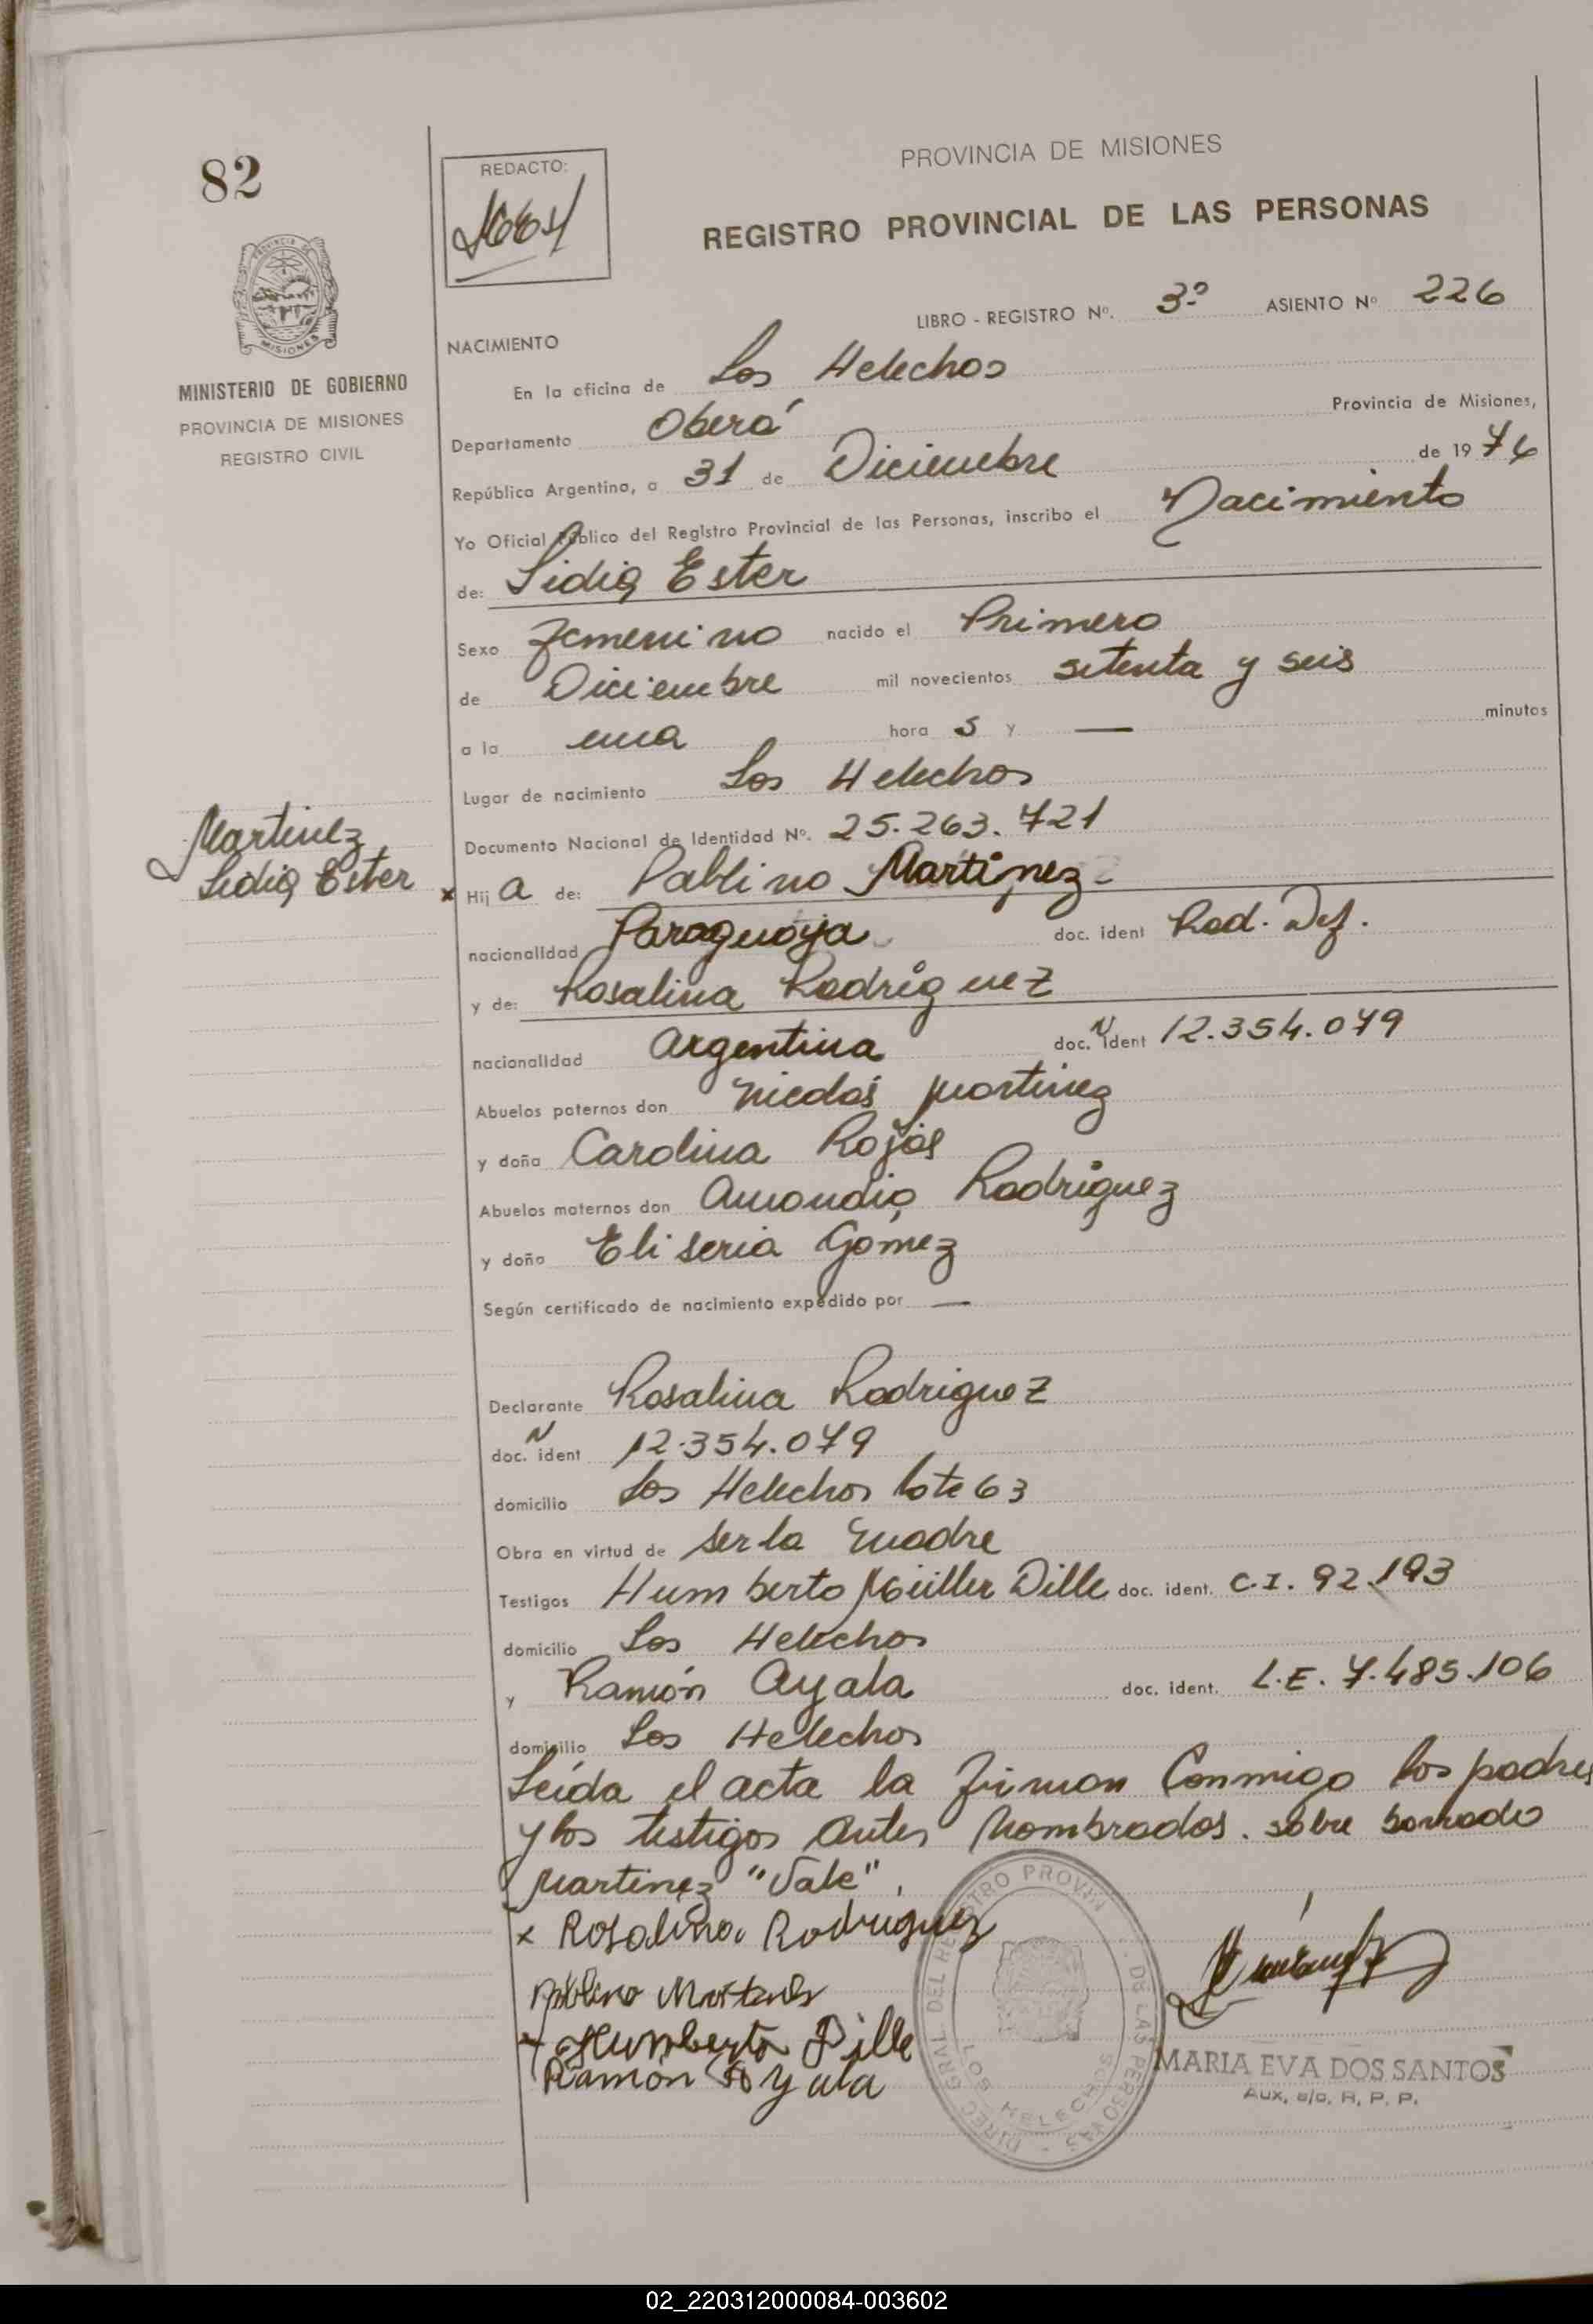 82
REDACTO:
PROVINCIA DE MISIONES
REGISTRO PROVINCIAL DE LAS PERSONAS
LIBRO - REGISTRO Nº. 3º ASIENTO Nº 226
PROVINCIA DE
MISIONES
MINISTERIO DE GOBIERNO
PROVINCIA DE MISIONES
REGISTRO CIVIL
NACIMIENTO
En la oficina de Los Helechos
Departamento Oberá Provincia de Misiones,
República Argentina, a 31 de Diciembre de 1976
Yo Oficial Público del Registro Provincial de las Personas, inscribo el Nacimiento
de: Lidia Ester
Sexo Femenino nacido el Primero
de Diciembre mil novecientos setenta y seis
a la una hora s y — minutos
Lugar de nacimiento Los Helechos
Documento Nacional de Identidad Nº. 25.263.721
Martinez
Lidia Ester
x Hij a de: Pablino Martinez
nacionalidad Paraguaya doc. ident Rad. Def.
y de: Rosalina Rodriguez
nacionalidad Argentina doc. N ident 12.354.079
Abuelos paternos don Nicolás Martinez
y doña Carolina Rojas
Abuelos maternos don Rodriguez
y doña Eliseria Gómez
Según certificado de nacimiento expedido por —
Declarante Rosalina Rodriguez
doc. N ident 12.354.079
domicilio Los Helechos lote 63
Obra en virtud de ser la madre
Testigos Humberto Müller Dille doc. ident. C.I. 92.193
domicilio Los Helechos
y Ramón Ayala doc. ident. L.E. 7.485.106
domicilio Los Helechos
Leída el acta la firman Conmigo los padres
y los testigos antes nombrados. sobre borrado
Martinez "Vale".
x Rosalina Rodriguez
Pablino Martinez
x Humberto Dille
Ramón Ayala
DIREC. GRAL. DEL REGISTRO PROVIN. DE LAS PERSONAS
LOS HELECHOS
MARIA EVA DOS SANTOS
Aux. a/c. R. P. P.
02_220312000084-003602